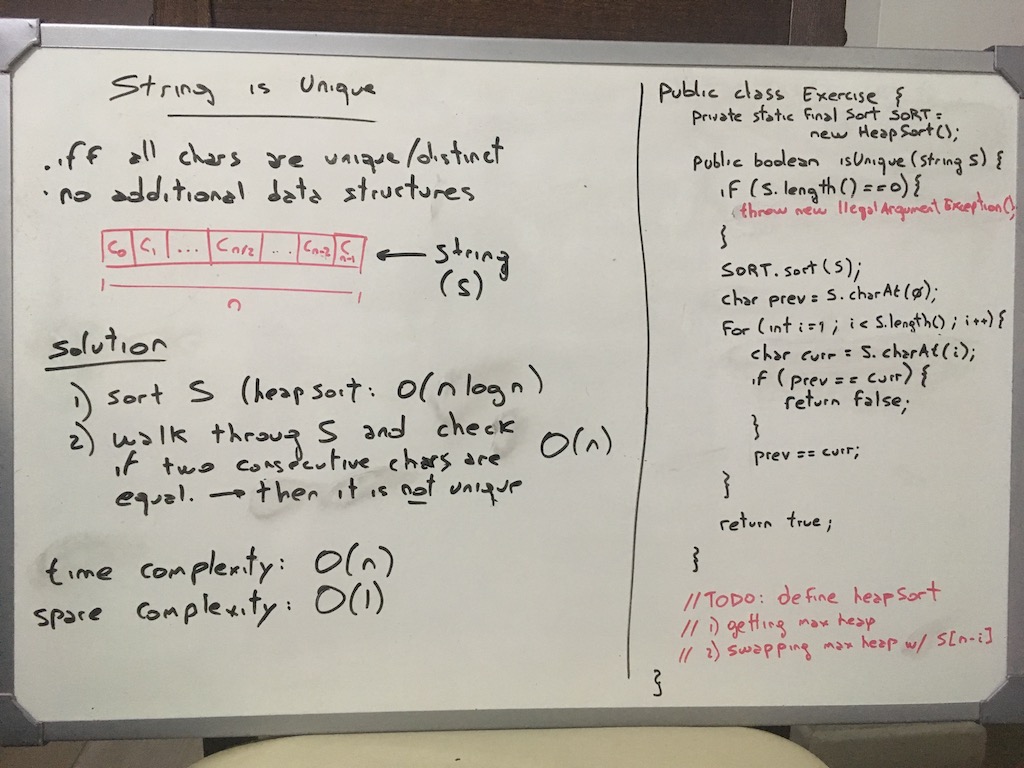 String is Unique
. iff all chars are unique/distinct
· no additional data structures
C0 C1 ... Cn/2 ... Cn-2 Cn-1 ← string
(S)
n
Solution
1) sort S (heapsort: O(n log n)
2) walk throug S and check
if two consecutive chars are O(n)
equal. → then it is not unique
time complexity: O(n)
space complexity: O(1)
Public class Exercise {
Private static final Sort SORT =
new HeapSort();
Public boolean isUnique(String s) {
if (S.length() == 0) {
throw new IlegalArgumentException();
}
SORT.sort(S);
char prev = S.charAt(0);
For (int i=1; i< S.length(); i++) {
char curr = S.charAt(i);
if (prev == curr) {
return false;
}
prev == curr;
}
return true;
}
// TODO: define heapSort
// 1) getting max heap
// 2) swapping max heap w/ S[n-i]
}